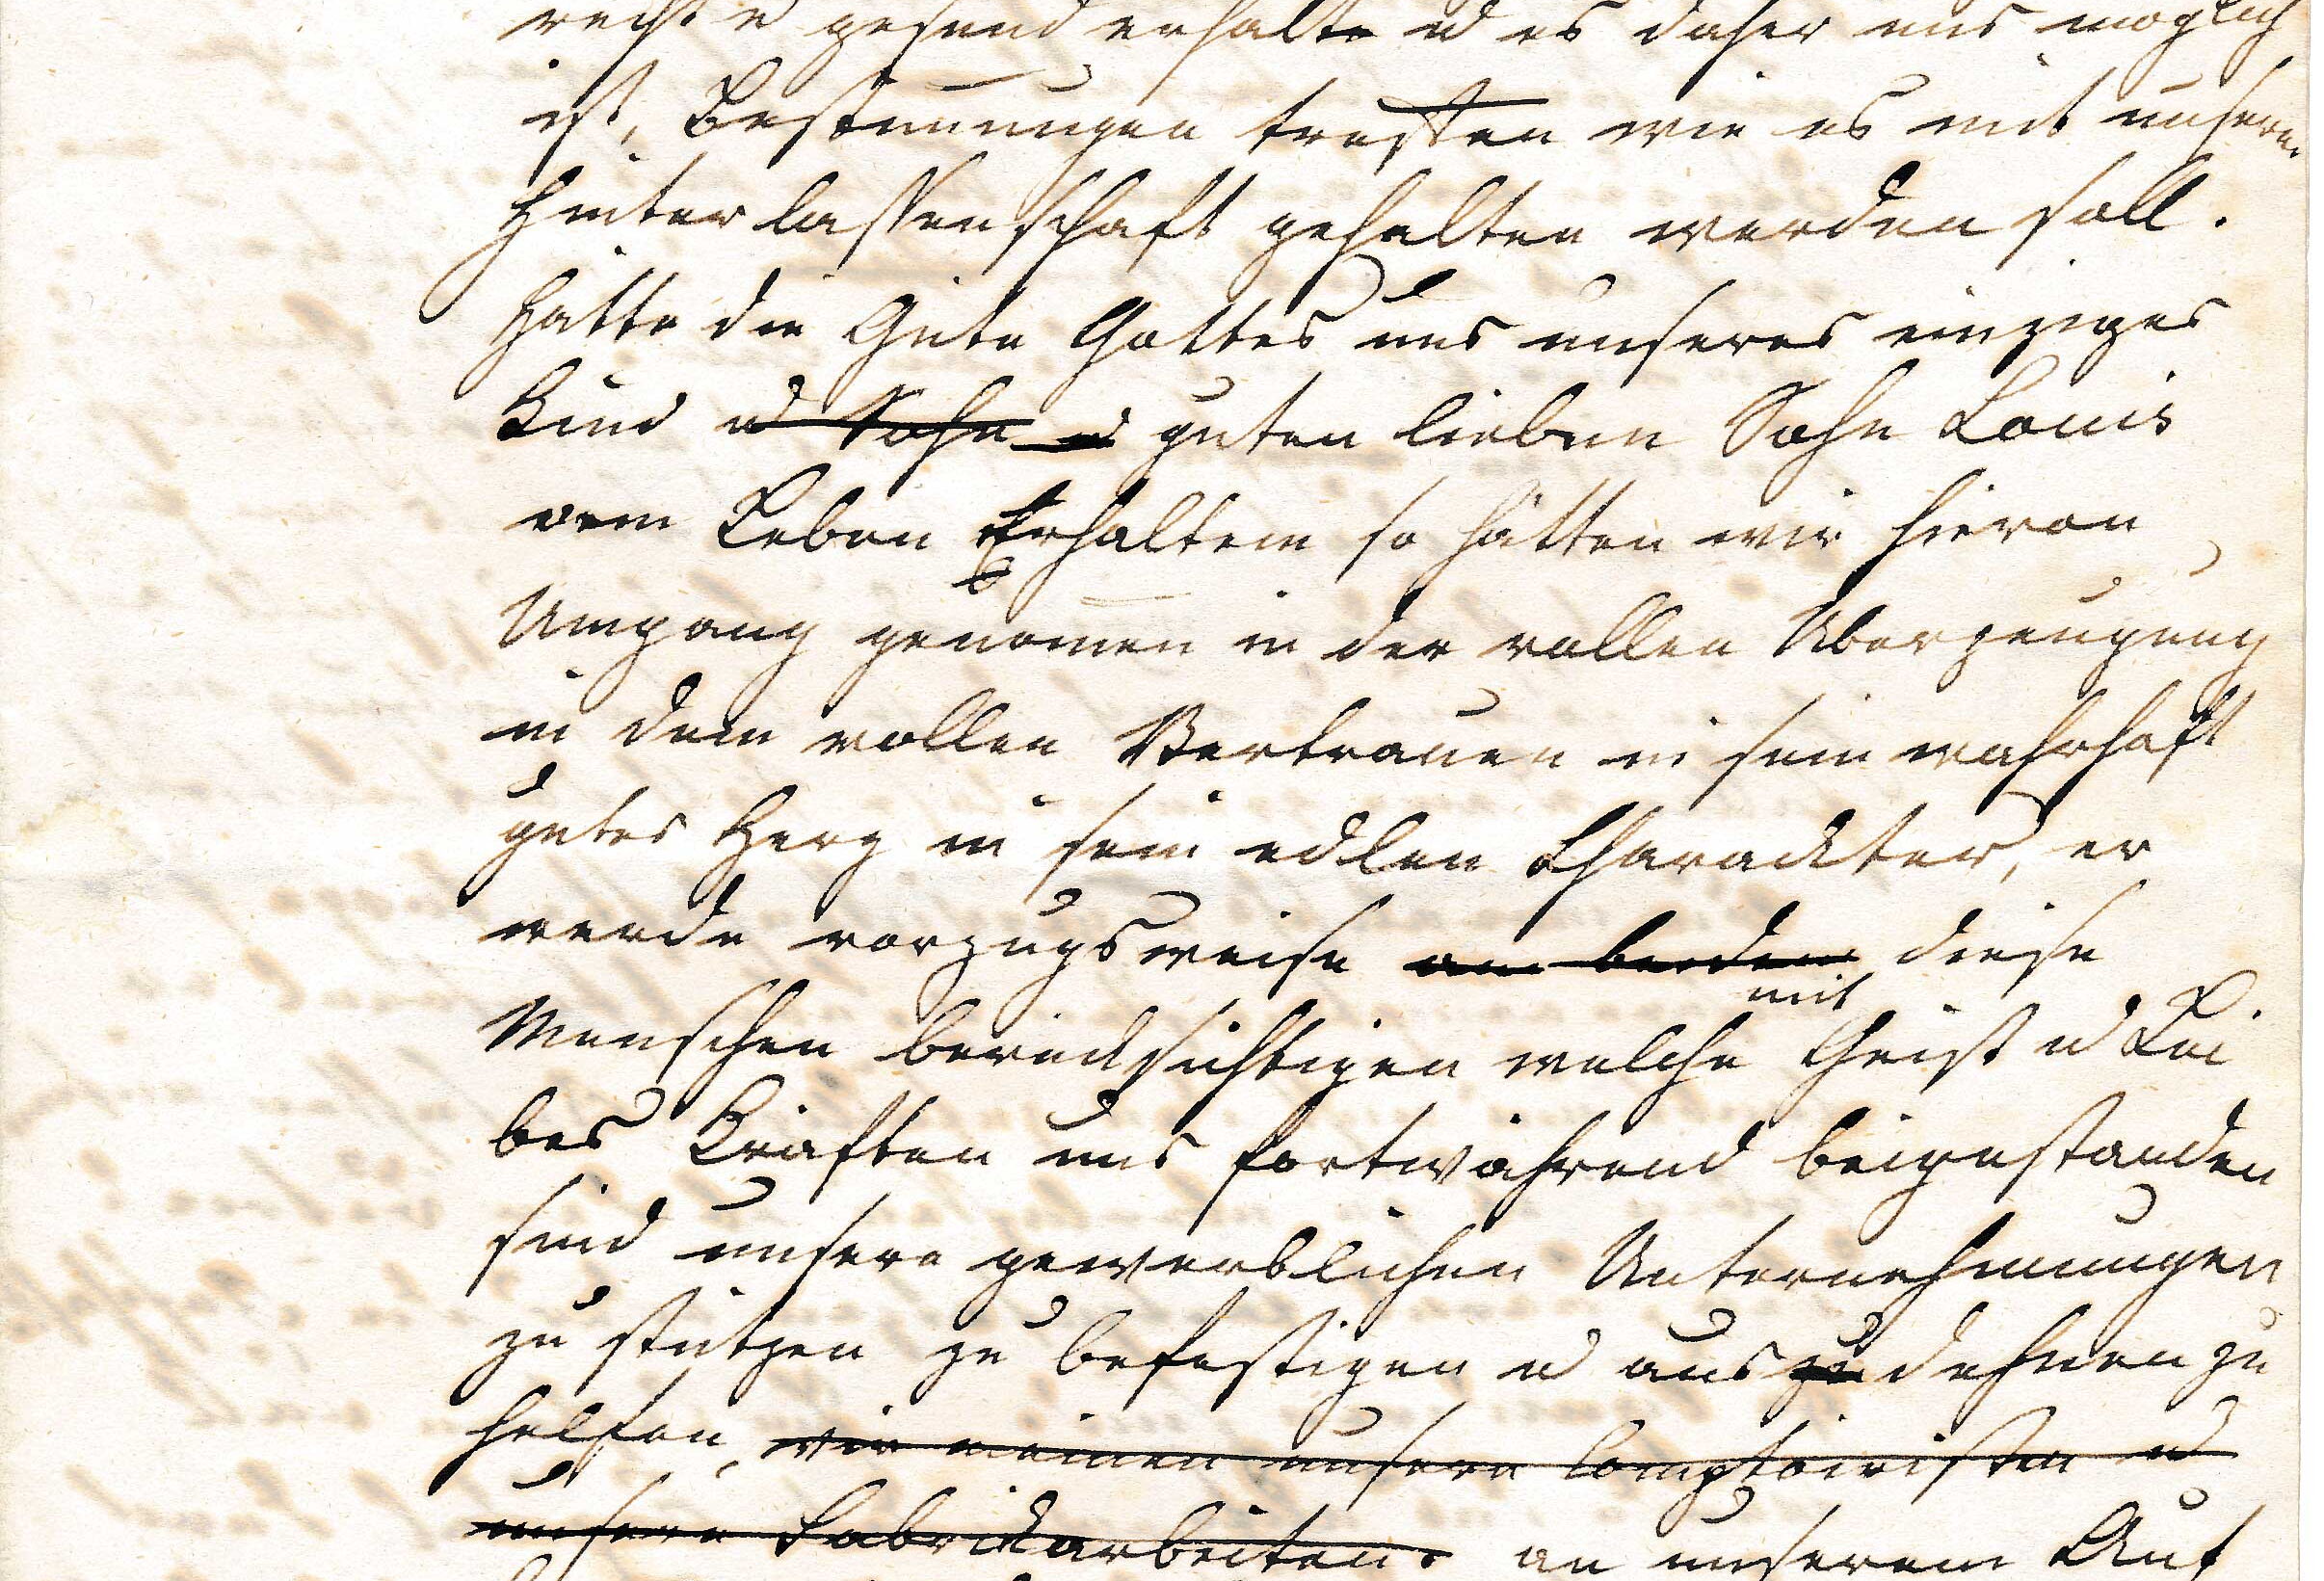 recht u gesund erhalte u es daher uns möglich
ist, Bestimungen treffen wie es mit unserer
Hinterlassenschaft gehalten werden soll.
Hätte die Güte Gottes uns unseres einziges
Kind u Sohn u guten lieben Sohn Louis
dem Leben Erhalten so hätten wir hievon
Umgang genomen in der vollen Uberzeugung
in dem vollen Vertrauen in sein wahrhaft
gutes Herz in sein edlen Charackter, er
werde vorzugsweise an beiden diese
mit
Menschen berücksichtigen welche Geist u Lei
bes Kräften uns fortwährend beigestanden
sind unsere gewerblichen Unternehmungen
zu stützen zu befestigen u auszudehnen zu
helfen, wir meinen unsere Comptoiristen u
unsere Fabrickarbeitern an unserem Auf